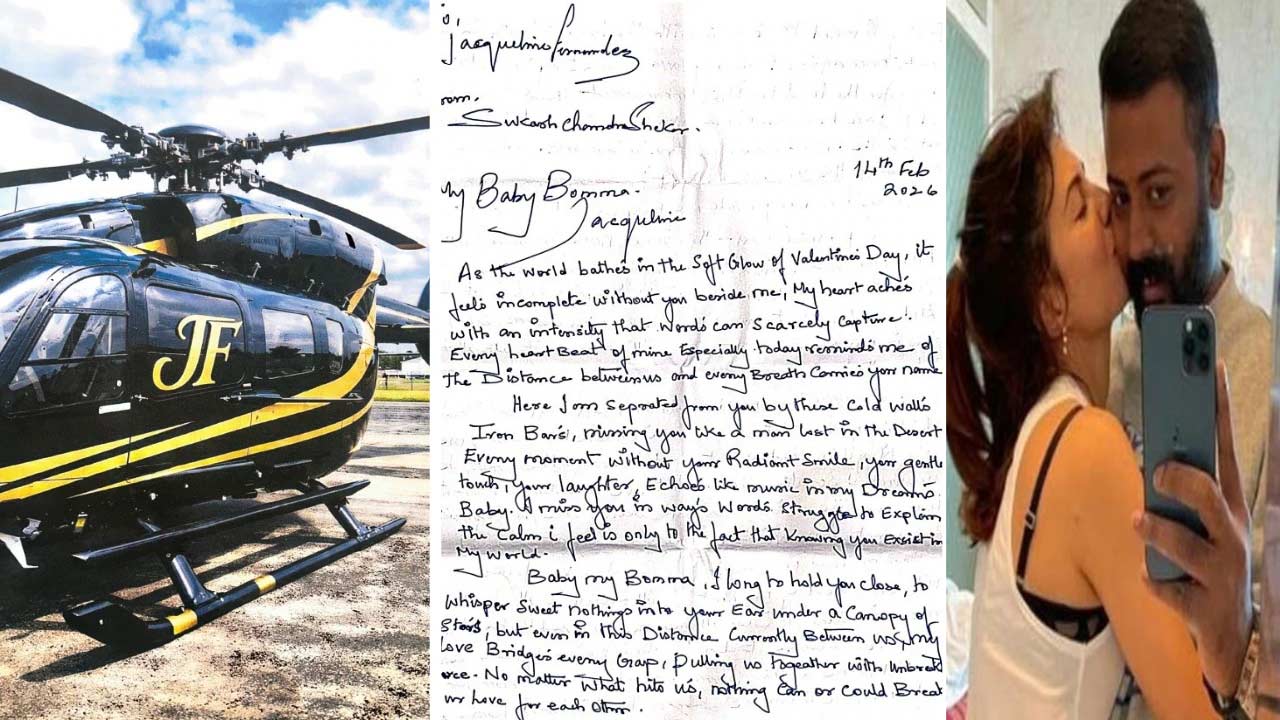 JF
o,
Jacqueline Fernandez
rom,
Sukash ChandraShekar.
14th Feb
2026
My Baby Bomma.
Jacqueline
As the world bathes in the Soft Glow of Valentines Day, it
feels incomplete without you beside me, My heart aches
with an intensity that words can scarcely capture.
Every heart Beat of mine Especially today reminds me of
the Distance between us and every Breath Carries your name
Here I am seprated from you by these Cold walls
Iron Bars, missing you like a man lost in the Desert
Every moment without your Radiant Smile, your gentle
touch, your laughter, Echoes like music in my Dreams.
Baby. I miss you in ways words struggle to Explain
The Calm i feel is only to the fact that Knowing you Exsist in
My world.
Baby my Bomma, I long to hold you close, to
whisper Sweet nothings into your Ear under a Canopy of
Stars, but even in this Distance Currently Between us, my
Love Bridges every Gap, Pulling us togeather with Unbreak
No matter what hits us, nothing Can or Could Break
our Love for each other.